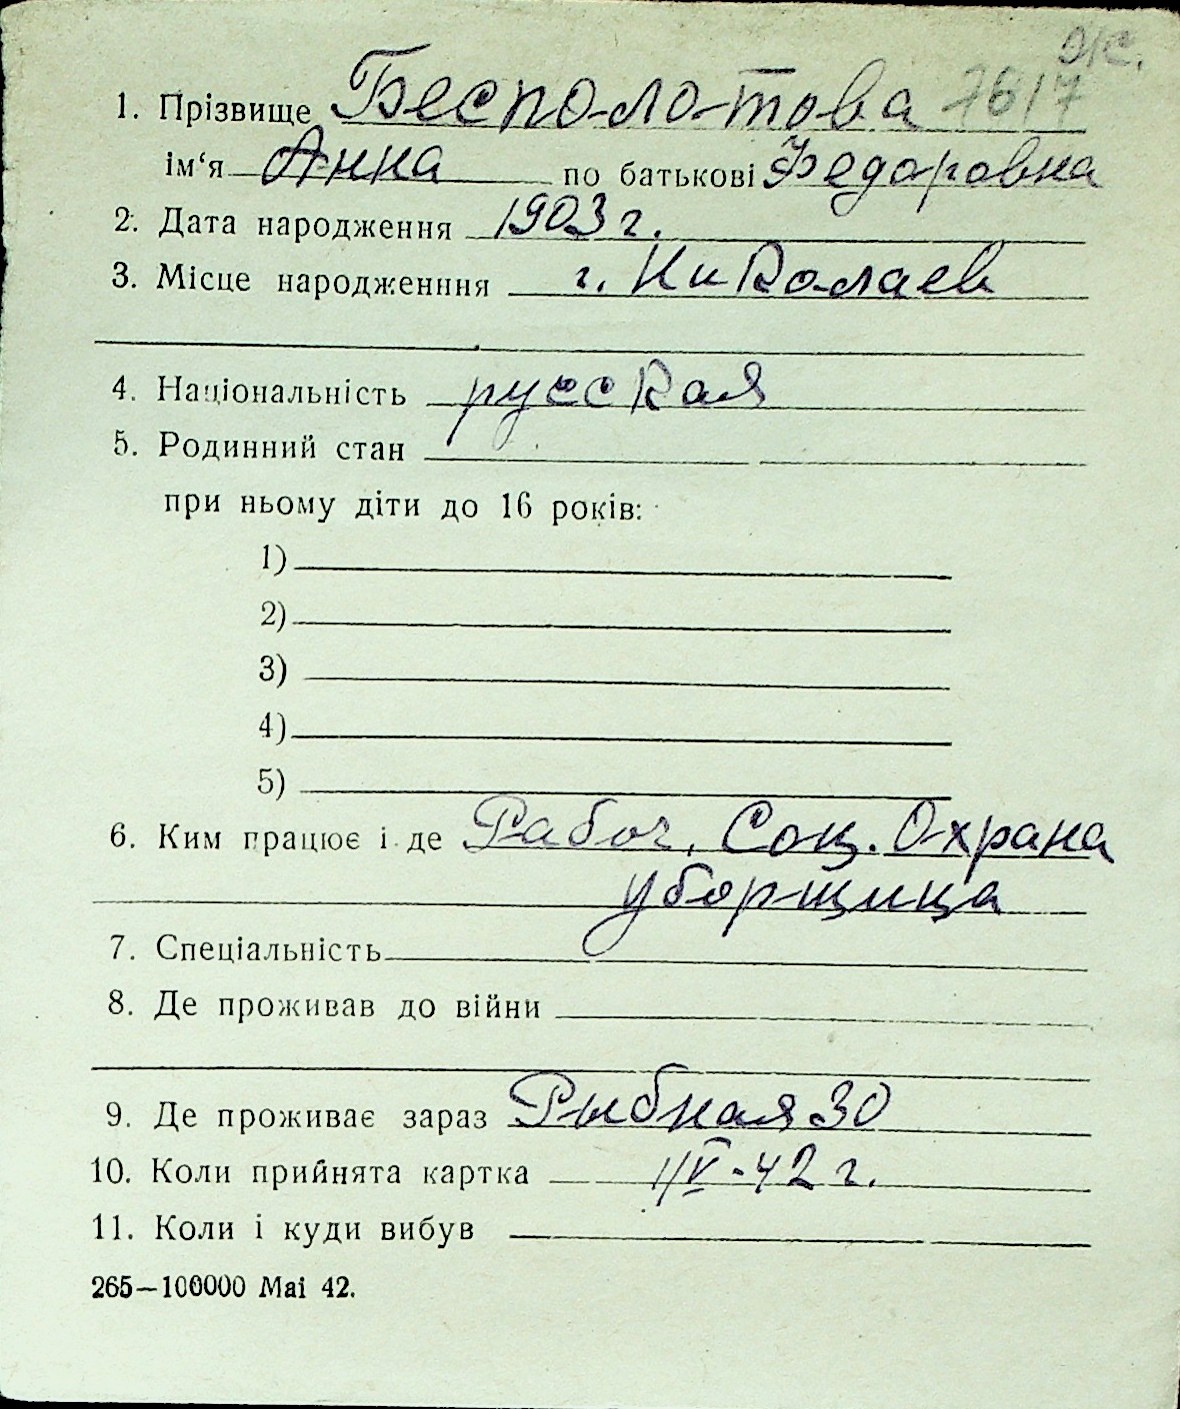 Ж.
1. Прізвище Бесполотова 7617
ім‘я Анна по батькові Федоровна
2. Дата народження 1903 г.
3. Місце народженння г. Николаев
4. Національність русская
5. Родинний стан
при ньому діти до 16 років:
1)
2)
3)
4)
5)
6. Ким працює і де Рабоч. Соц. Охрана
уборщица
7. Спеціальність
8. Де проживав до війни
9. Де проживає зараз Рыбная 30
10. Коли прийнята картка 1/V-42 г.
11. Коли і куди вибув
265—100000 Mai 42.